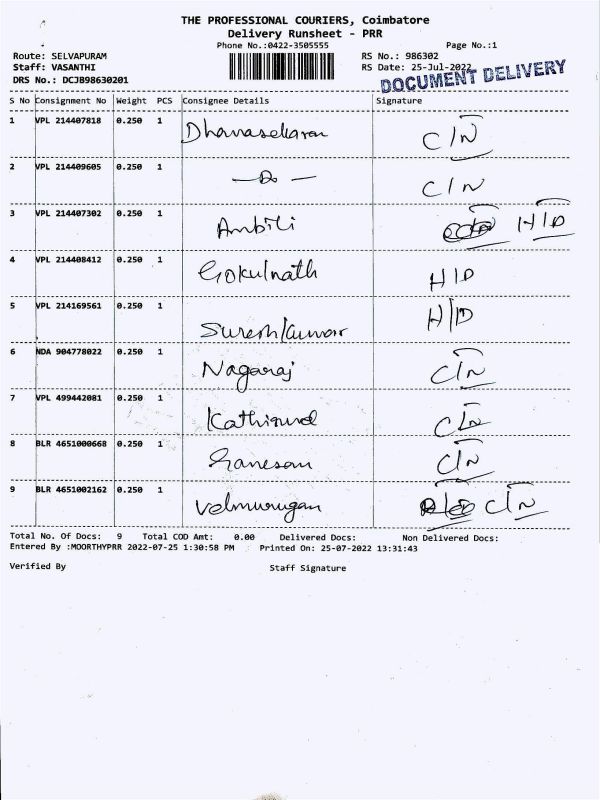 THE PROFESSIONAL COURIERS, Coimbatore
Delivery Runsheet - PRR
Phone No.:0422-3505555 Page No.:1
Route: SELVAPURAM RS No.: 986302
Staff: VASANTHI RS Date: 25-Jul-2022
DRS No.: DCJB98630201 DOCUMENT DELIVERY
S No Consignment No Weight PCS Consignee Details Signature
1 VPL 214407818 0.250 1 Dhanasekaran C/N
2 VPL 214409605 0.250 1 —Do— C/N
3 VPL 214407302 0.250 1 Ambili H/D
4 VPL 214408412 0.250 1 Gokulnath H/D
5 VPL 214169561 0.250 1 Sureshkumar H/D
6 NDA 904778022 0.250 1 Nagaraj C/N
7 VPL 499442081 0.250 1 C/N
8 BLR 4651000668 0.250 1 Ganesan C/N
9 BLR 4651002162 0.250 1 Velmurugan C/N
Total No. Of Docs: 9 Total COD Amt: 0.00 Delivered Docs: Non Delivered Docs:
Entered By :MOORTHYPRR 2022-07-25 1:30:58 PM Printed On: 25-07-2022 13:31:43
Verified By Staff Signature